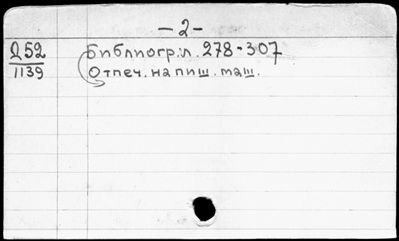 -2-
252 Библиогр. л. 278-307
1139 Отпеч. на пиш. маш.